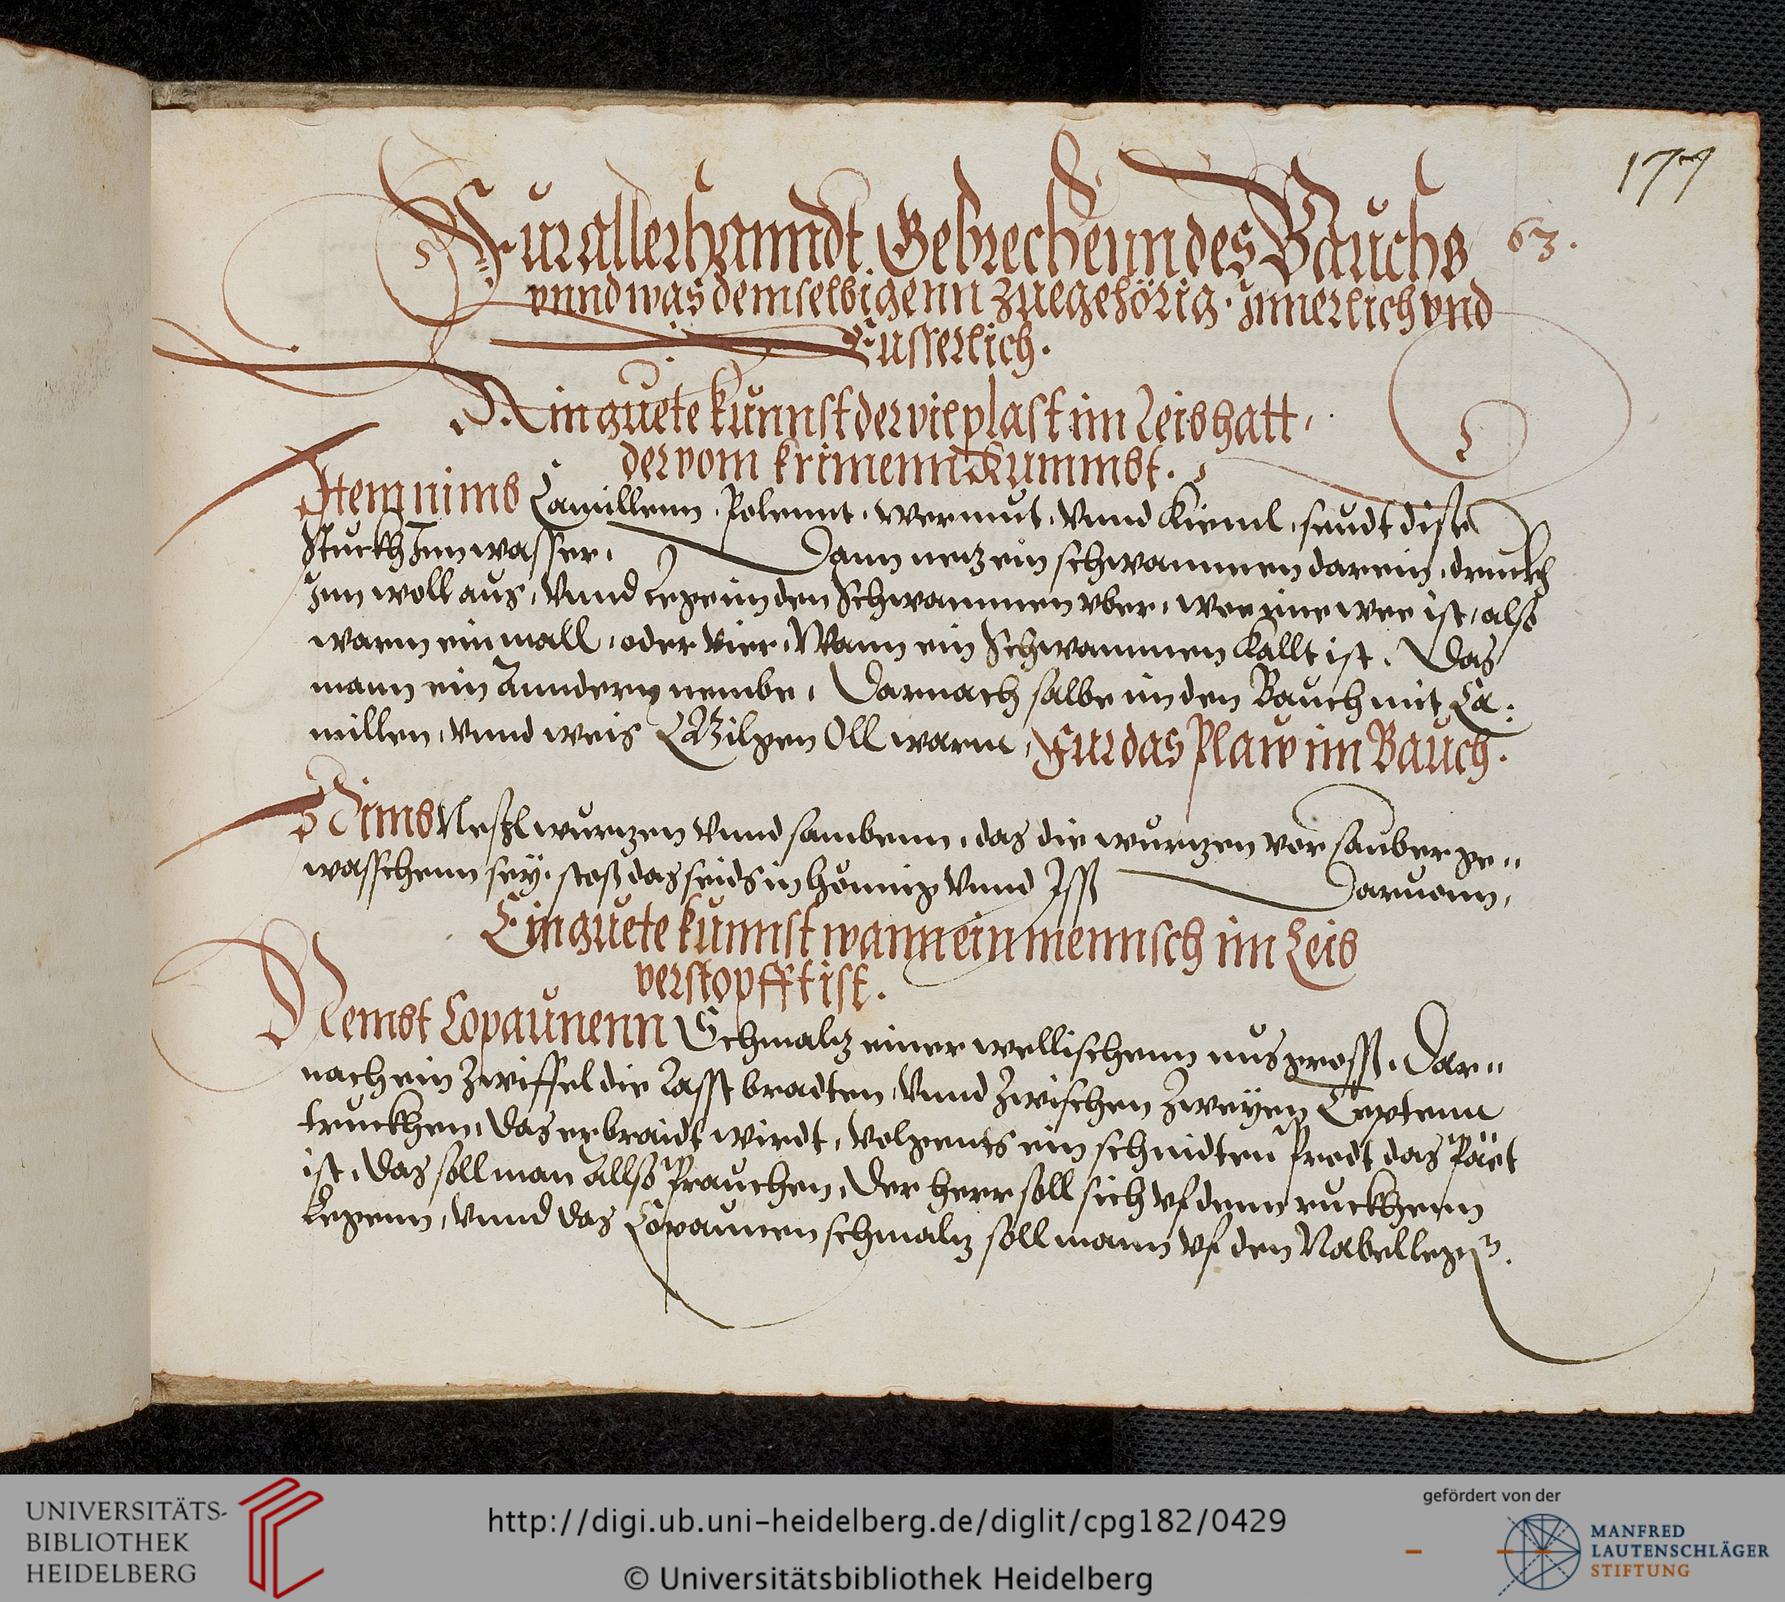 177
Fur allerhanndt Gebrechenn des Bauchs 63.
vnnd was demselbigenn zuegehörig. Jnnerlich vnd
Eusserlich.
Ain guete kunnst der vil plast im Leib hatt,
der vom krimenn kummbt.
Jtem nimb Camillenn, Polennt, wermut, vnnd Kieml, seudt dise
Stuckh Jnn wasser, Dann netz ein schwammen darein, druckh
Jnn woll aus, vnnd leg im den Schwammen vber, wo ime wee ist, alls
warm ein mall, oder vier, Wann ein Schwammen kallt ist, Das
mann ein Anndern nembe, Darnach salbe im den Bauch mit Ca:
millen, vnnd weis Gilgen Oll warm, Fur das Plaw im Bauch.
Nimb Nessl wurtzen vnnd sambenn, das die wurtzen vor sauber ge=
wasschenn sey, stoß das seids in hönnig vnnd Jss Daruonn,
Ein guete kunnst wann ein mennsch im Leib
verstopfft ist.
Nembt Copaunenn Schmaltz einer wellischenn nus gross, Dar=
nach ein Zwiffel die lasst bradten, vnnd Zwischen Zweyen
truckhen, Das er braidt wirdt, volgents ein schnidten Prodt das
ist, Das soll man Allso Prauchen, Der herr soll sich vf denn ruckhenn
Legenn, vnnd das Copaunen schmaltz soll mann vf den Nabel legen.
UNIVERSITÄTS-
BIBLIOTHEK
HEIDELBERG
http://digi.ub.uni-heidelberg.de/diglit/cpg182/0429
© Universitätsbibliothek Heidelberg
gefördert von der
MANFRED
LAUTENSCHLÄGER
STIFTUNG